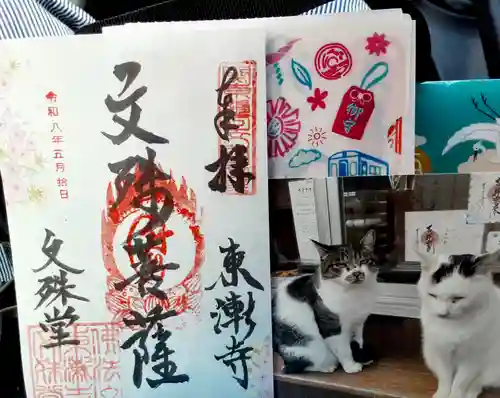 奉拝
東漸寺
文殊菩薩
令和八年五月拾日
文殊堂
御守